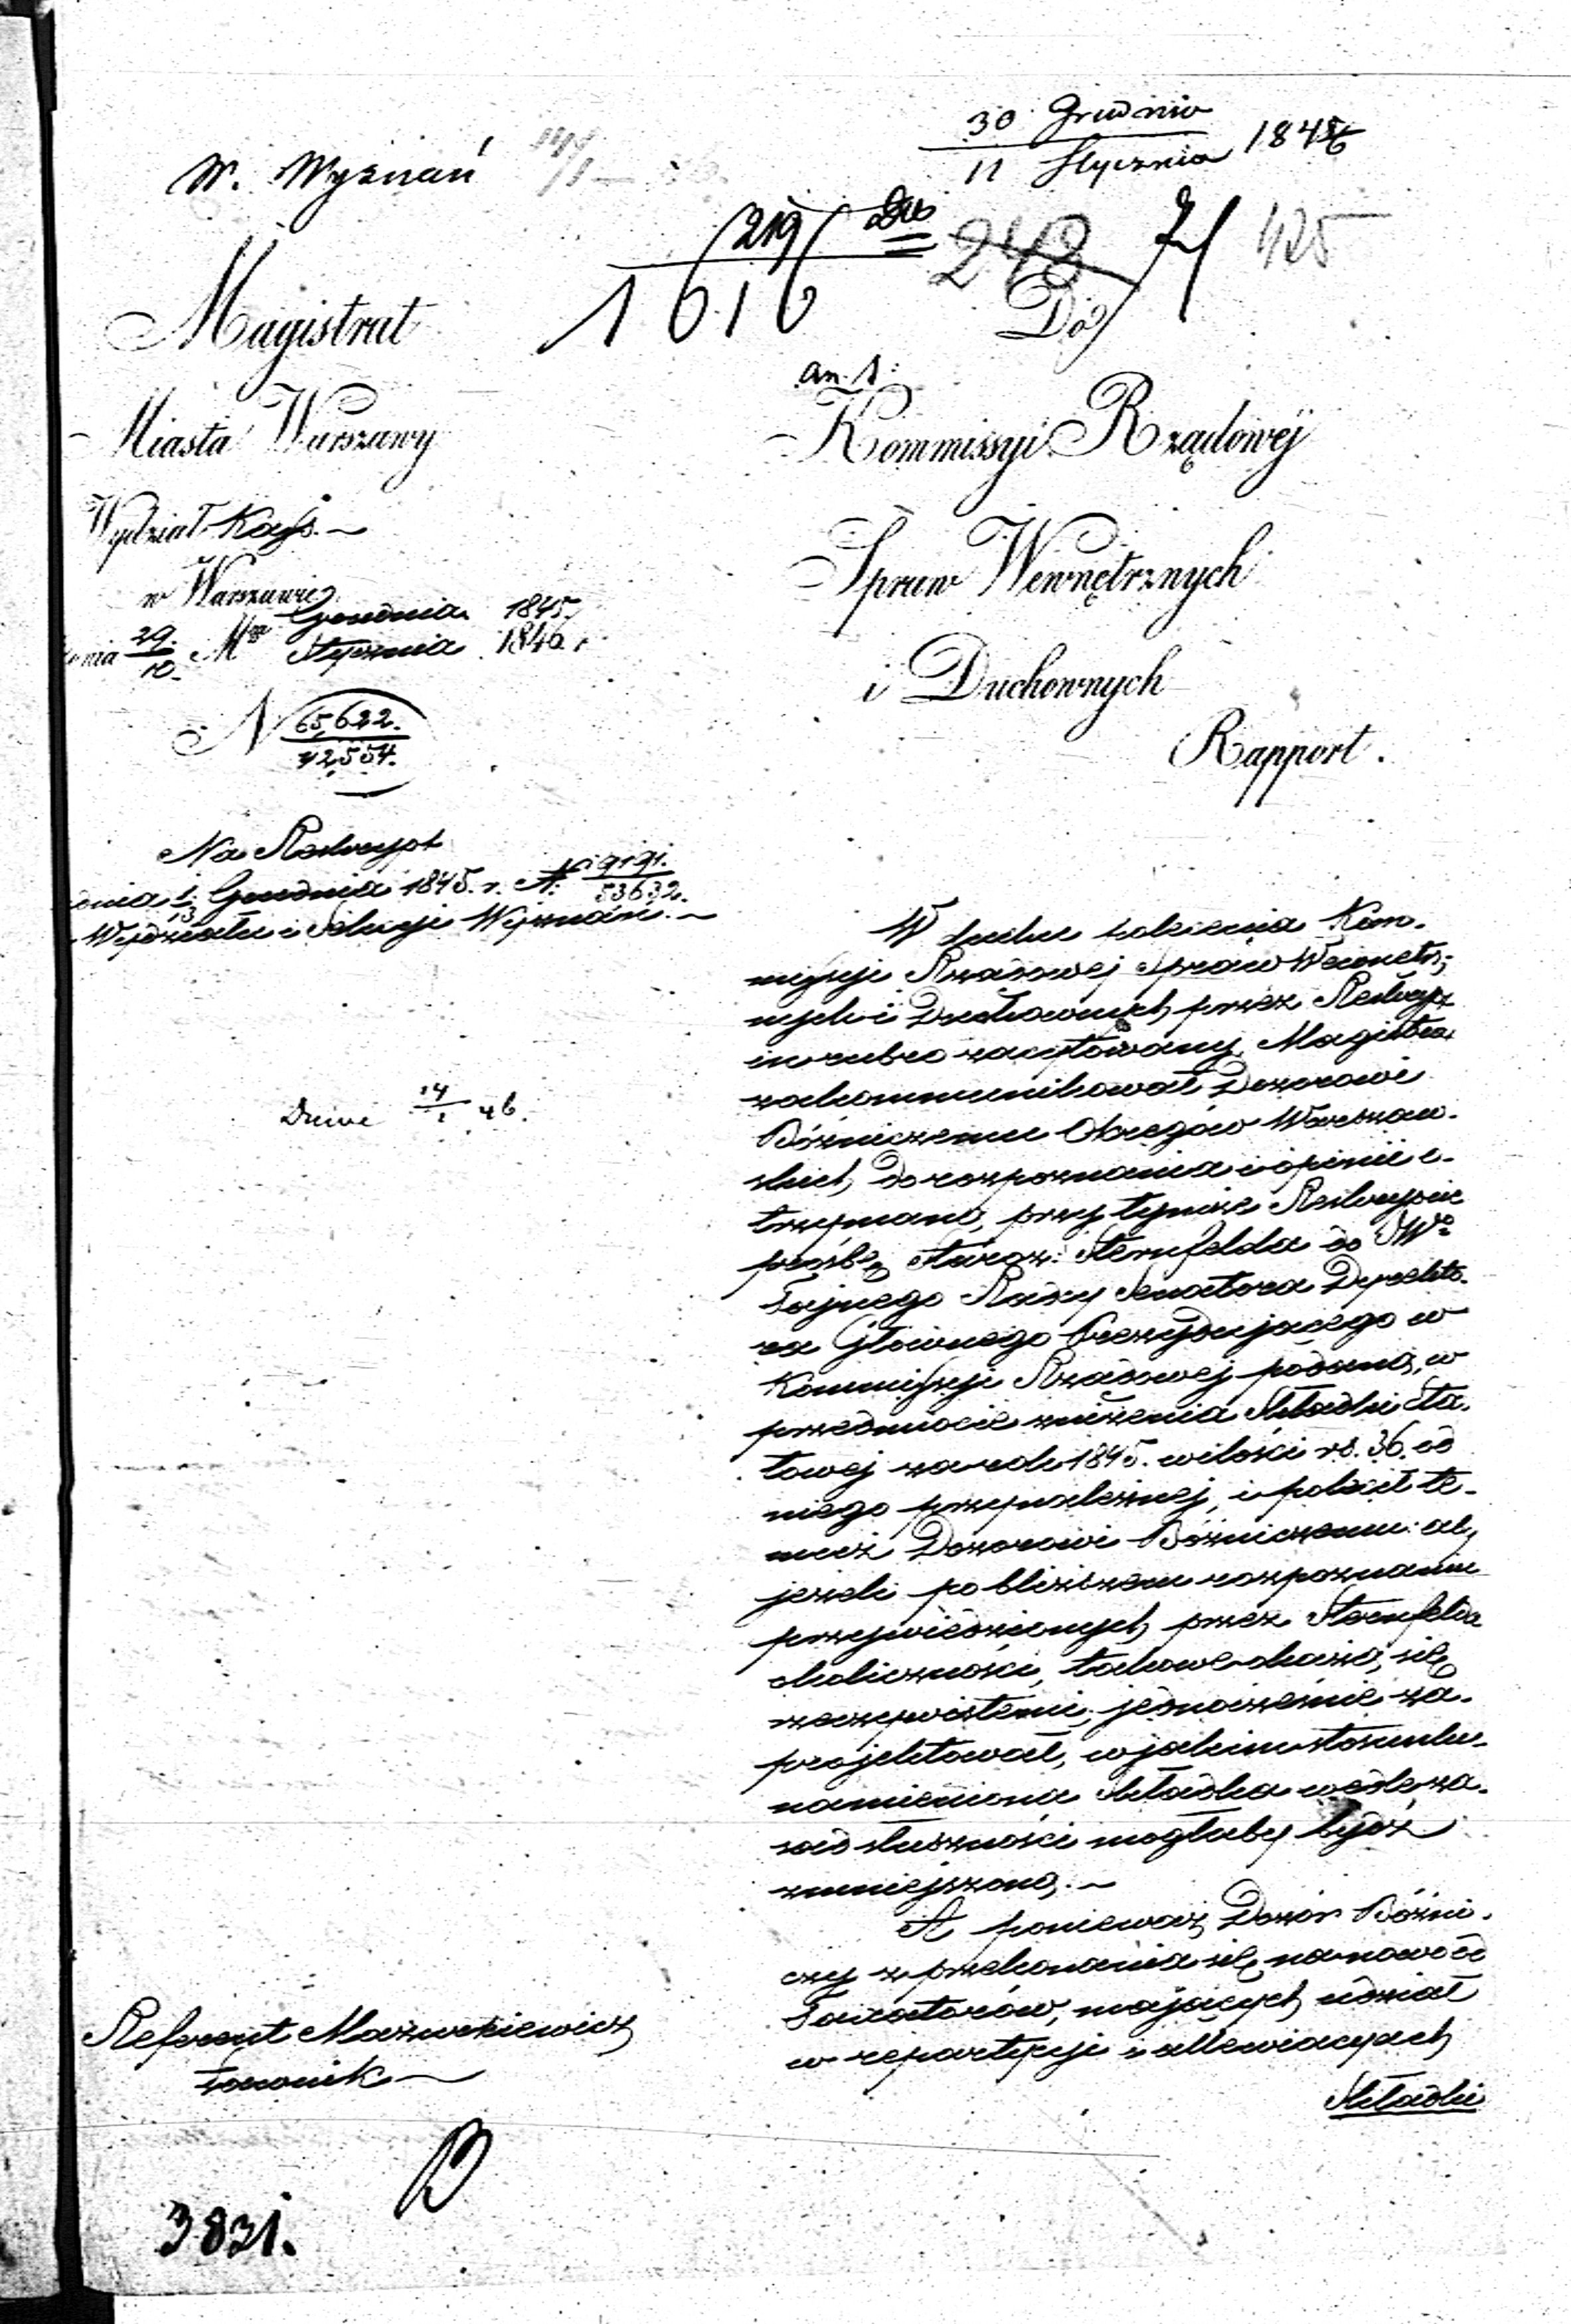 W. Wyznań
30 Grudnia
11 Stycznia 1846
219
1616
248
71
425
Magistrat
Miasta Warszawy
Wydział Kass.
w Warszawie
dnia 29. Grudnia 1845.
10. Stycznia 1846 r.
N 65,622.
42,554.
Do
an. 1:
Kommissyi Rządowéj
Spraw Wewnętrznych
i Duchownych
Rapport.
Na Reskrypt
dnia 1/13 Grudnia 1845. r. N: 9191.
53632.
Wydziału i Sekcyi Wyznań.
Dnia 14/1 46.
W skutku polecenia Kom-
missyi Rządowej Spraw Wewnętrz-
nych i Duchownych, przez Reskrypt
in rubro zacytowany, Magistrat
zakommunikował Dozorowi
Bóżniczemu Okręgów Warszaw-
skich, do rozpoznania i opinii o-
trzymaną, przy tymże Reskrypcie
prośbę Staroz: Sternfelda do JWo
Tajnego Radcy Senatora Dyrekto-
ra Głównego Prezydującego w
Kommissyi Rządowej podaną, w
przedmiocie zniżenia Składki Eta-
towej za rok 1845. w ilości rs. 36. od
niego przynależnej, i polecił te-
muż Dozorowi Bóżniczemu: aby
jeżeli po bliższem rozpoznaniu
przywiedzionych, przez Sternfelda
okoliczności, takowe okażą się
rzeczywistemi, jednocześnie za-
projektował, w jakim stosunku
namieniona Składka wedle za-
sad słuszności mogłaby bydź
zmniejszoną.
A ponieważ Dozór Bóżni-
czy z przekonania się na nowo od
Taxatorów, mających udział
w repartycyi i allewiacyach
Składki
Referent Mazurkiewicz
Ławnik
3831.